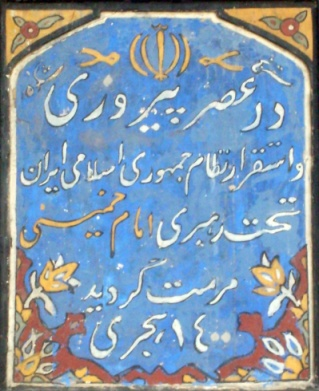 در عصر پیروزی
و استقرار نظام جمهوری اسلامی ایران
تحت رهبری امام خمینی
مرمت گردید
۱٤۰۰ هجری